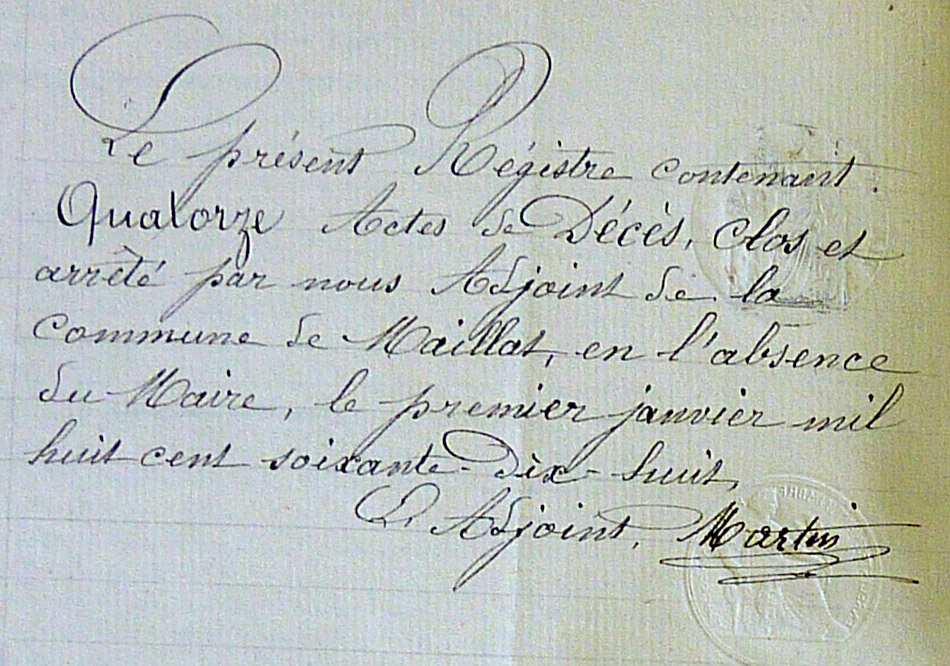 Le présent Régistre contenant
Quatorze Actes de Décès, clos et
arrêté par nous Adjoint de la
commune de Maillat, en l'absence
du Maire, le premier janvier mil
huit cent soixante-dix-huit,
L'Adjoint, Martin